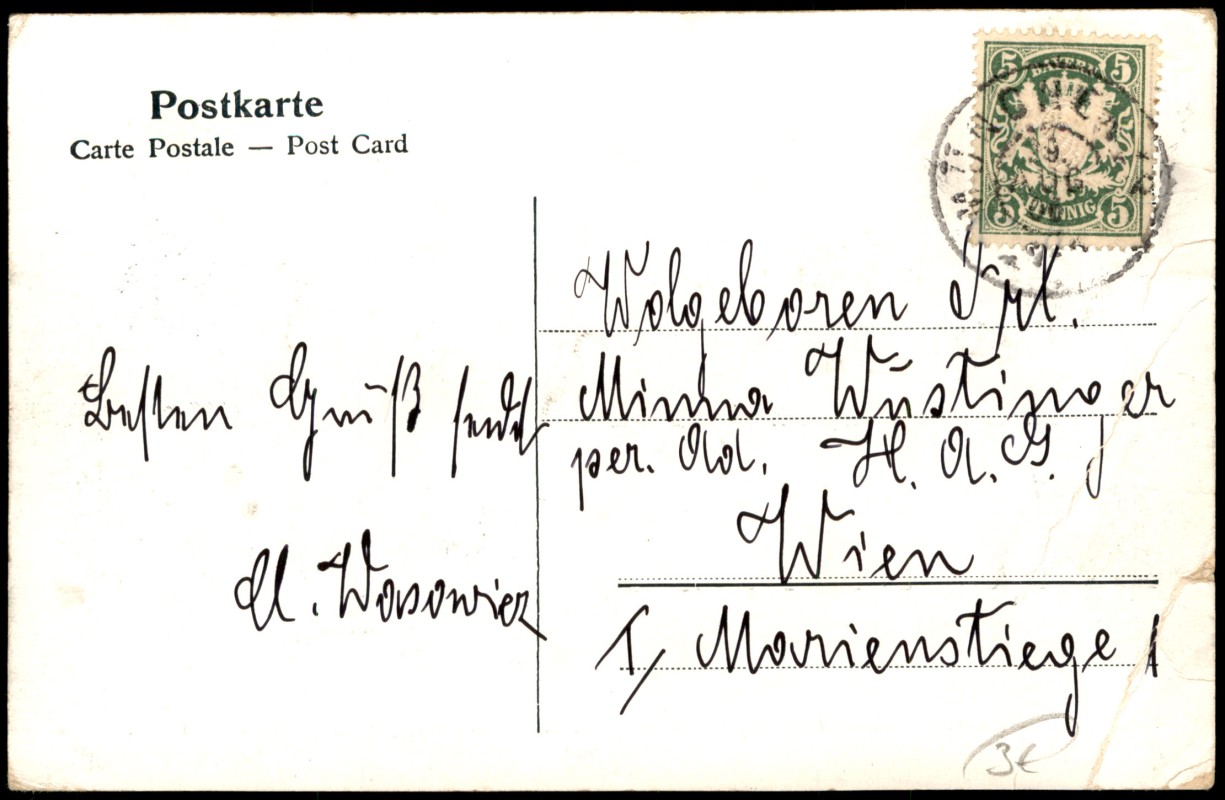 Postkarte
Carte Postale — Post Card
5 BAYERN 5
5 PFENNIG 5
Wolgeboren Frl.
Minna Wüstinger
per. Ad. H. A. G.
Wien
I, Marienstiege 1
Besten Gruß sendet
Wosowicz
3€